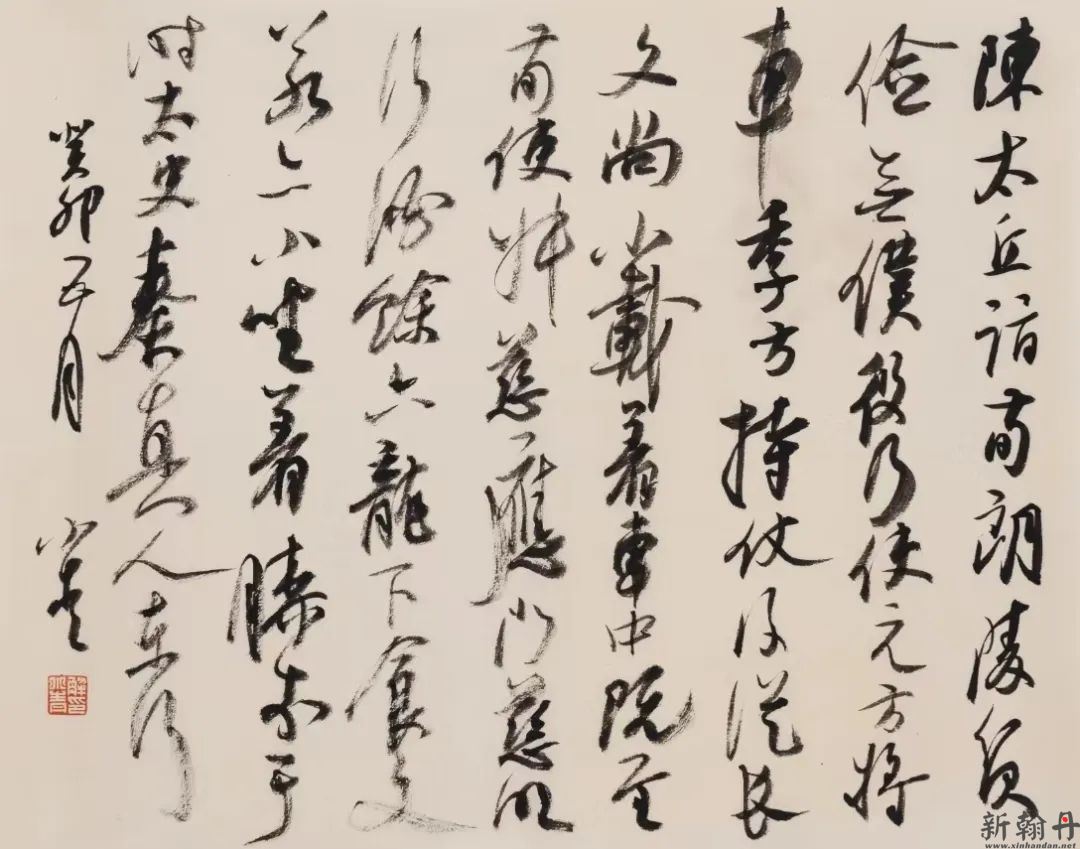 陳太丘詣荀朗陵貧
儉無僕役乃使元方將
車季方持仗後從長
文尚小載着車中既至
荀使叔慈應門慈明
行酒餘六龍下食文
若亦小坐着膝前于
時太史奏真人東行
癸卯五月 小青
新翰丹
www.xinhandan.net